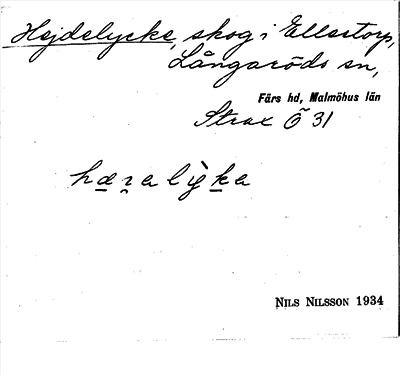 Hejdelycke, skog i Ellestorp,
Långaröds sn,
Färs hd, Malmöhus län
Strax Ö 31
hæ̱ɪ̯a lỳḵa
NILS NILSSON 1934